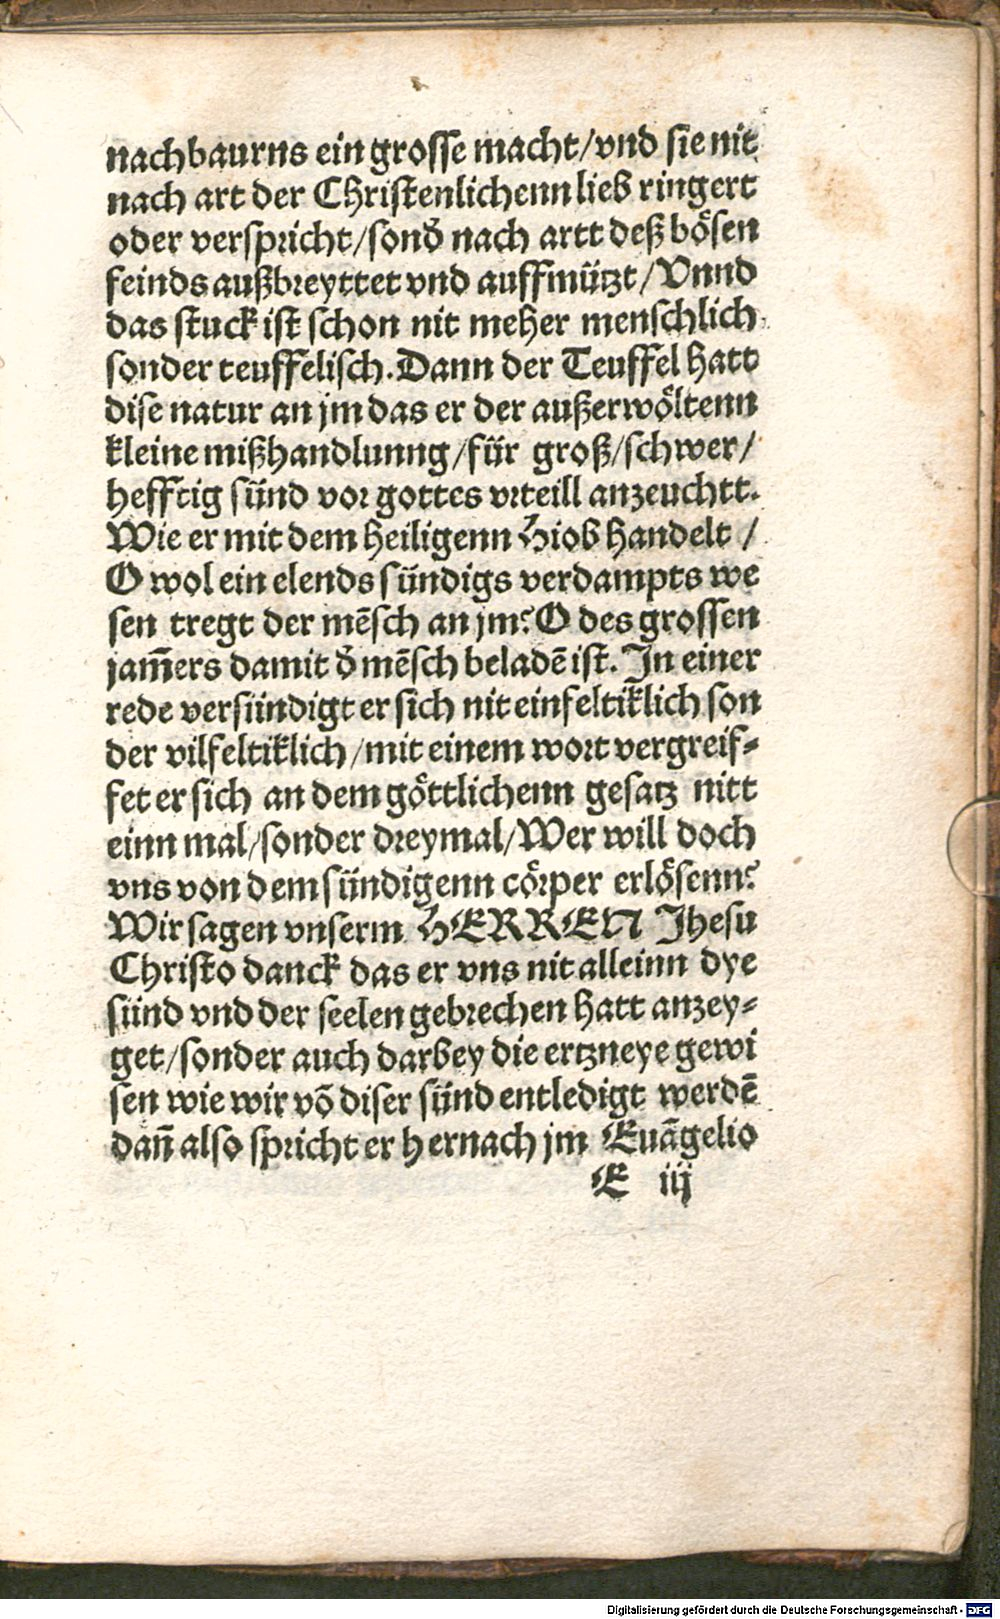 nachbaurns ein grosse macht/vnd sie nit
nach art der Christenlichenn lieb ringert
oder verspricht/sond̕ nach artt deß bösen
feinds außbreyttet vnd auffmützt/Vnnd
das stuck ist schon nit meher menschlich
sonder teuffelisch. Dann der Teuffel hatt
dise natur an jm das er der außerwöltenn
kleine mißhandlunng/für groß/schwer/
hefftig sünd vor gottes vrteill anzeuchtt.
Wie er mit dem heiligenn Hiob handelt/
O wol ein elends sündigs verdampts we
sen tregt der mēsch an jm? O des grossen
jam̄ers damit d̕ mēsch beladē ist. In einer
rede versündigt er sich nit einfeltiklich son
der vilfeltiklich/mit einem wort vergreif⸗
fet er sich an dem göttlichenn gesatz nitt
einn mal/sonder dreymal/Wer will doch
vns von dem sündigenn cörper erlösenn?
Wir sagen vnserm HERREN Jhesu
Christo danck das er vns nit alleinn dye
sünd vnd der seelen gebrechen hatt anzey⸗
get/sonder auch darbey die ertzneye gewi
sen wie wir vō diser sünd entledigt werdē
dan̄ also spricht er hernach jm Euāgelio
E iij
Digitalisierung gefördert durch die Deutsche Forschungsgemeinschaft - DFG